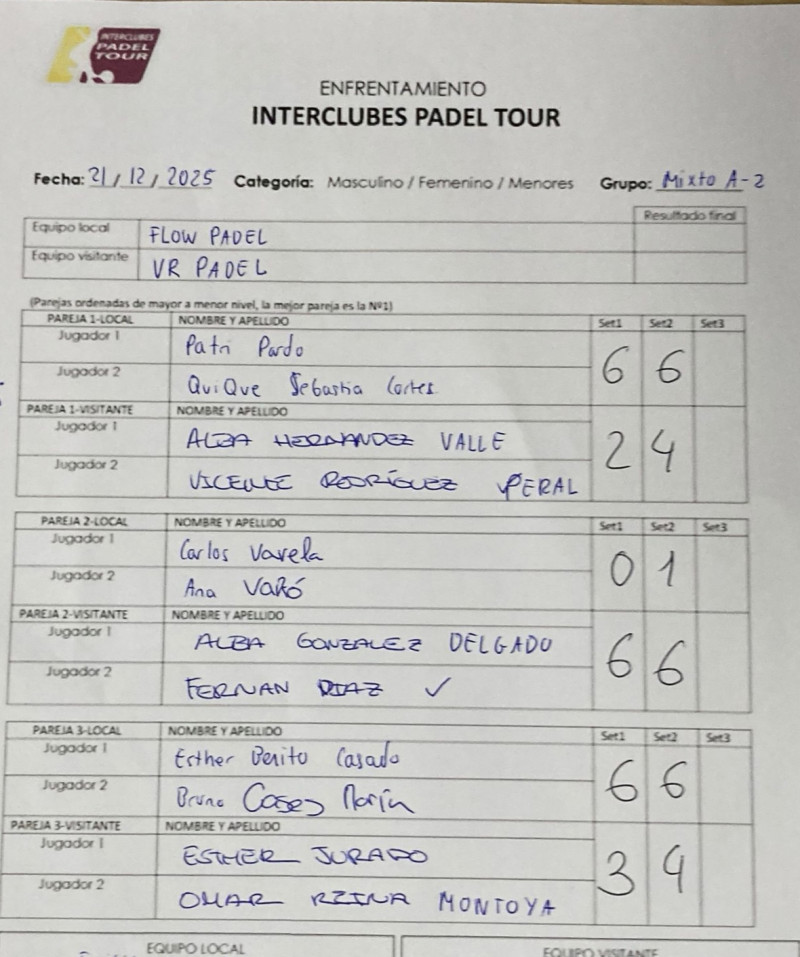 INTERCLUBES
PADEL
TOUR
ENFRENTAMIENTO
INTERCLUBES PADEL TOUR
Fecha: 21 / 12 / 2025 Categoría: Masculino / Femenino / Menores Grupo: Mixto A-2
Resultado final
Equipo local FLOW PADEL
Equipo visitante VR PADEL
(Parejas ordenadas de mayor a menor nivel, la mejor pareja es la Nº1)
PAREJA 1-LOCAL NOMBRE Y APELLIDO Set1 Set2 Set3
Jugador 1 Patri Pardo
6 6
Jugador 2 QuiQue Sebastia Cortes
PAREJA 1-VISITANTE NOMBRE Y APELLIDO
Jugador 1 ALBA HERNANDEZ VALLE
2 4
Jugador 2 VICENTE RODRÍGUEZ PERAL
PAREJA 2-LOCAL NOMBRE Y APELLIDO Set1 Set2 Set3
Jugador 1 Carlos Varela
0 1
Jugador 2 Ana VARÓ
PAREJA 2-VISITANTE NOMBRE Y APELLIDO
Jugador 1 ALBA GONZALEZ DELGADO
6 6
Jugador 2 FERNAN DIAZ ✓
PAREJA 3-LOCAL NOMBRE Y APELLIDO Set1 Set2 Set3
Jugador 1 Esther Benito Casado
6 6
Jugador 2 Bruno Cases Marín
PAREJA 3-VISITANTE NOMBRE Y APELLIDO
Jugador 1 ESTHER JURADO
3 4
Jugador 2 OMAR REINA MONTOYA
EQUIPO LOCAL EQUIPO VISITANTE